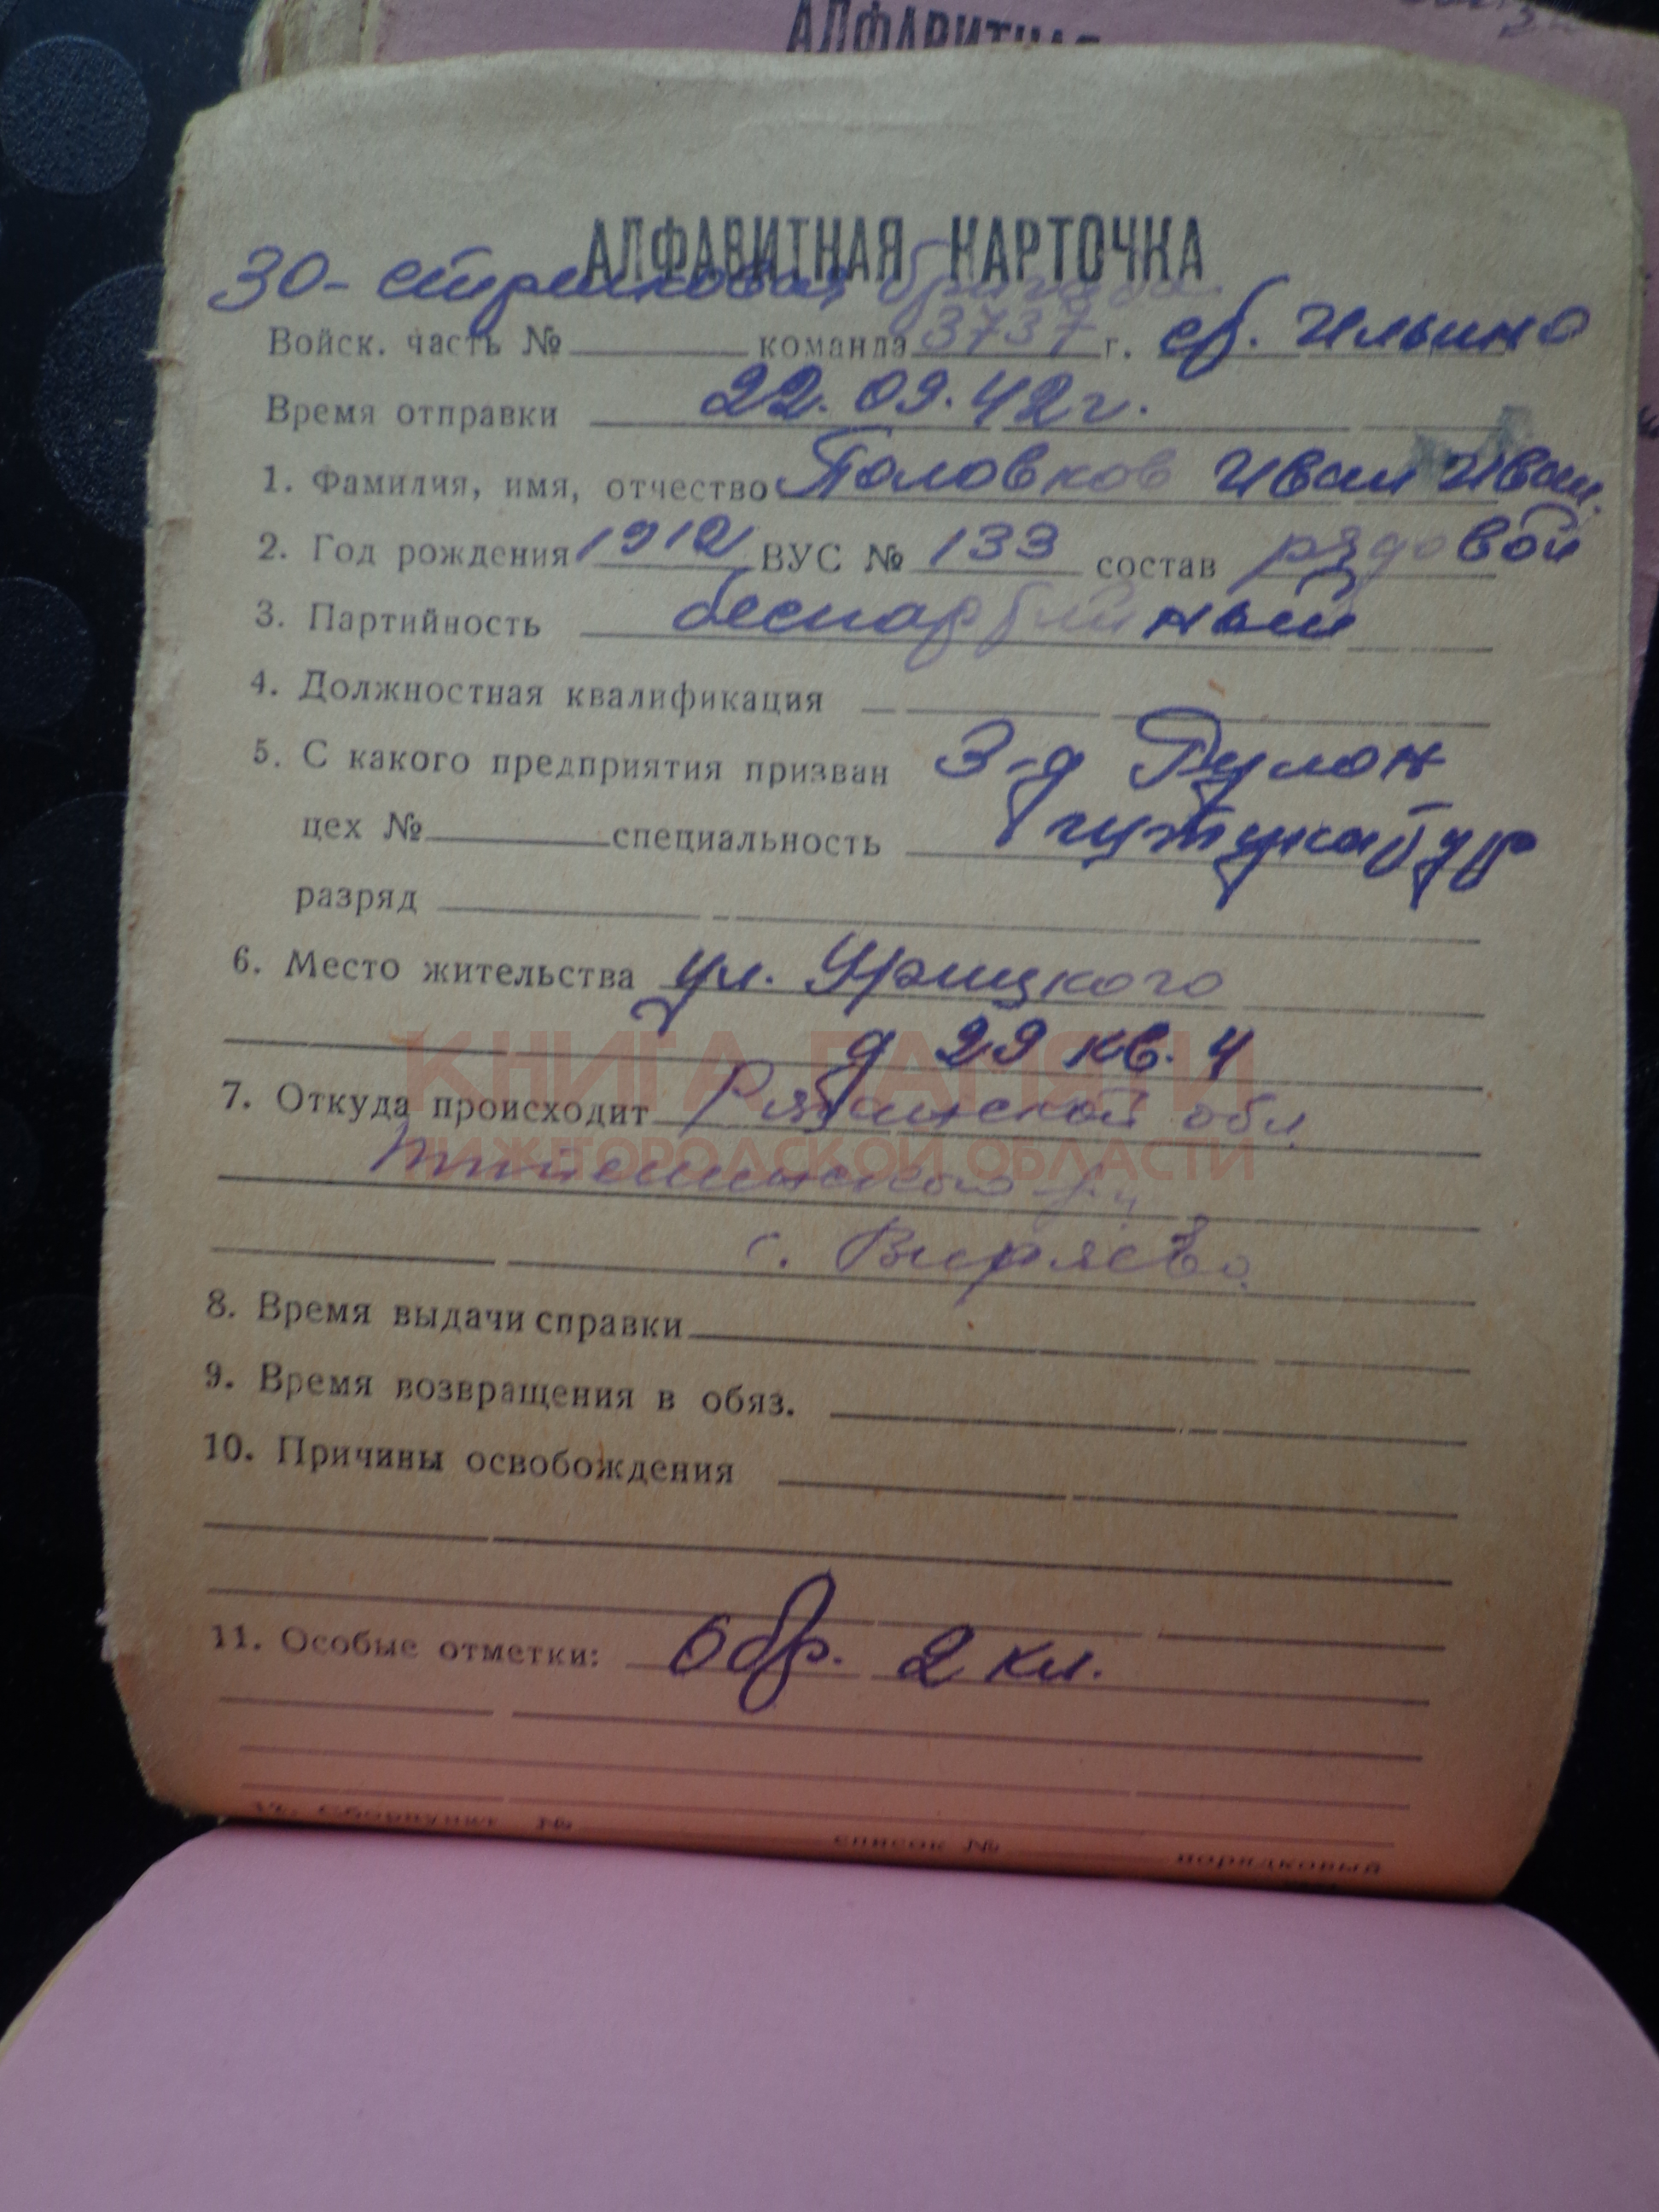 АЛФАВИТНАЯ
АЛФАВИТНАЯ КАРТОЧКА
30-стрелковая бригада
Войск. часть № команда 3737 г. ст. Ильино
Время отправки 22.09.42 г.
1. Фамилия, имя, отчество Половков Иван Иван.
2. Год рождения 1912 ВУС № 133 состав рядовой
3. Партийность беспартийный
4. Должностная квалификация
5. С какого предприятия призван З-д
цех № специальность
разряд
6. Место жительства ул. Урицкого
д 29 кв. 4
КНИГА ПАМЯТИ
7. Откуда происходит Рязанской обл.
НИЖЕГОРОДСКОЙ ОБЛАСТИ
с. Виряево
8. Время выдачи справки
9. Время возвращения в обяз.
10. Причины освобождения
11. Особые отметки: Обр. 2 кл.
12. Сборпункт № список № порядковый